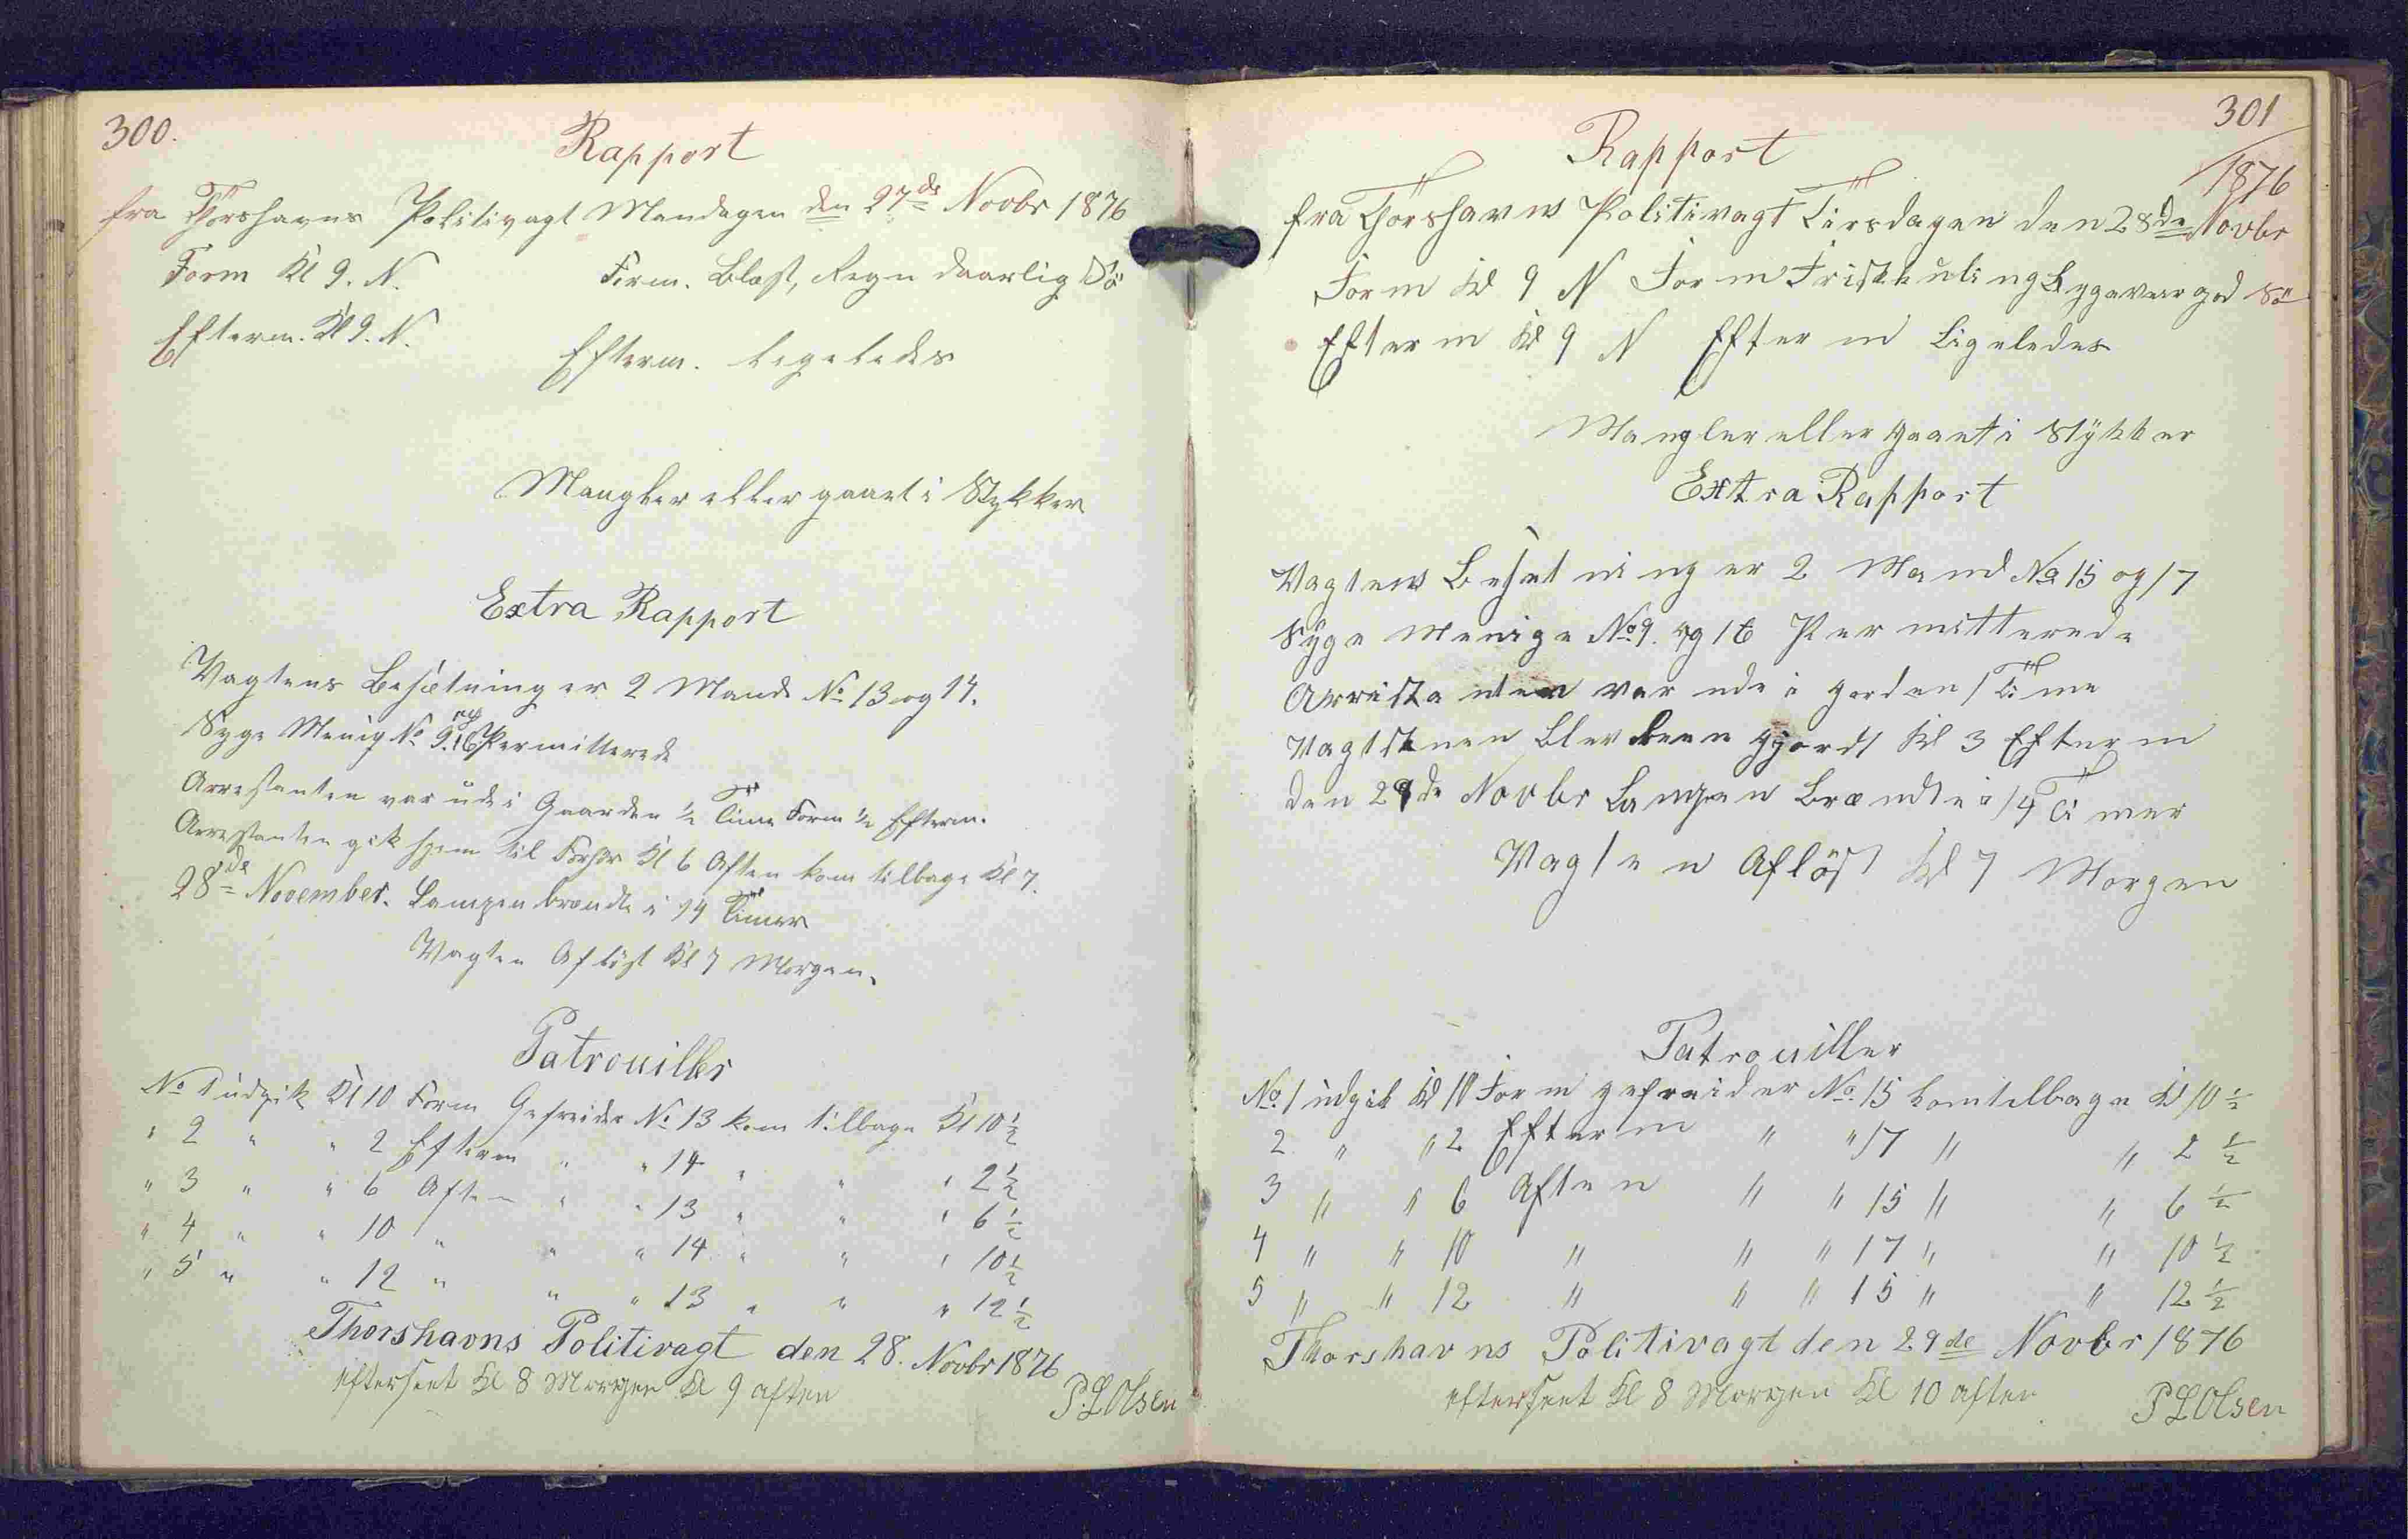 300.
Rapport
fra Thorshavns Politivagt Mandagen den 27de Novbr 1876
Form Kl 9. N. Form. Blæst, Regn daarlig Sö
Efterm. Kl 9. N.
Efterm. ligeledes
Mangler eller gaaet i Stykker
Extra Rapport
Vagtens Besætning er 2 Mand No 13 og 14.
Syge Menig No 9. og 16 Permitterede
Arrestanten var ude i Gaarden ½ Time Form ½ Efterm.
Arrestanten gik hjem til Forhör Kl 6 Aften kom tilbage Kl 7.
28de November. Lampen brændte i 14 Timer
Vagten Aflöst Kl 7 Morgen.
Patrouiller
No 1 udgik Kl 10 Form Gefreider No 13 kom tilbage Kl 10 ½
" 2 " " 2 Efterm " " 14 " " " 2 ½
" 3 " " 6 Aften " " 13 " " " 6 ½
" 4 " " 10 " " " 14 " " " 10 ½
" 5 " " 12 " " " 13 " " " 12 ½
Thorshavns Politivagt den 28. Novbr 1876
efterseet Kl 8 Morgen Kl 9 aften
P. L Olsen
301
Rapport
1876
fra Thorshavns Politivagt Tirsdagen den 28de Novbr
Form Kl 9 N Form Frisk kuling Bygeveir god Sö
Efterm Kl 9 N Efterm Ligeledes
Mangler eller gaaet i Stykker
Extra Rapport
Vagtens Besetning er 2 Mand No 15 og 17
Syge Menige No 9. og 16 Permitterede
Arristanten var ude i gorden 1 Time
Vagtstuen blev Reen gjordt Kl 3 Efterm
den 29de Novbr Lampen Brændte i 14 Timer
Vagten Aflöst Kl 7 Morgen
Patrouiller
No. 1 udgik Kl 10 Form gefreider No. 15 komtilbage Kl 10 ½
2 " " 2 Efterm " " 17 " " 2 ½
3 " " 6 Aften " " 15 " " 6 ½
4 " " 10 " " " 17 " " 10 ½
5 " " 12 " " " 15 " " 12 ½
Thorshavns Politivagt den 29de Novbr 1876
efterseet Kl 8 Morgen Kl 10 aften
P L Olsen